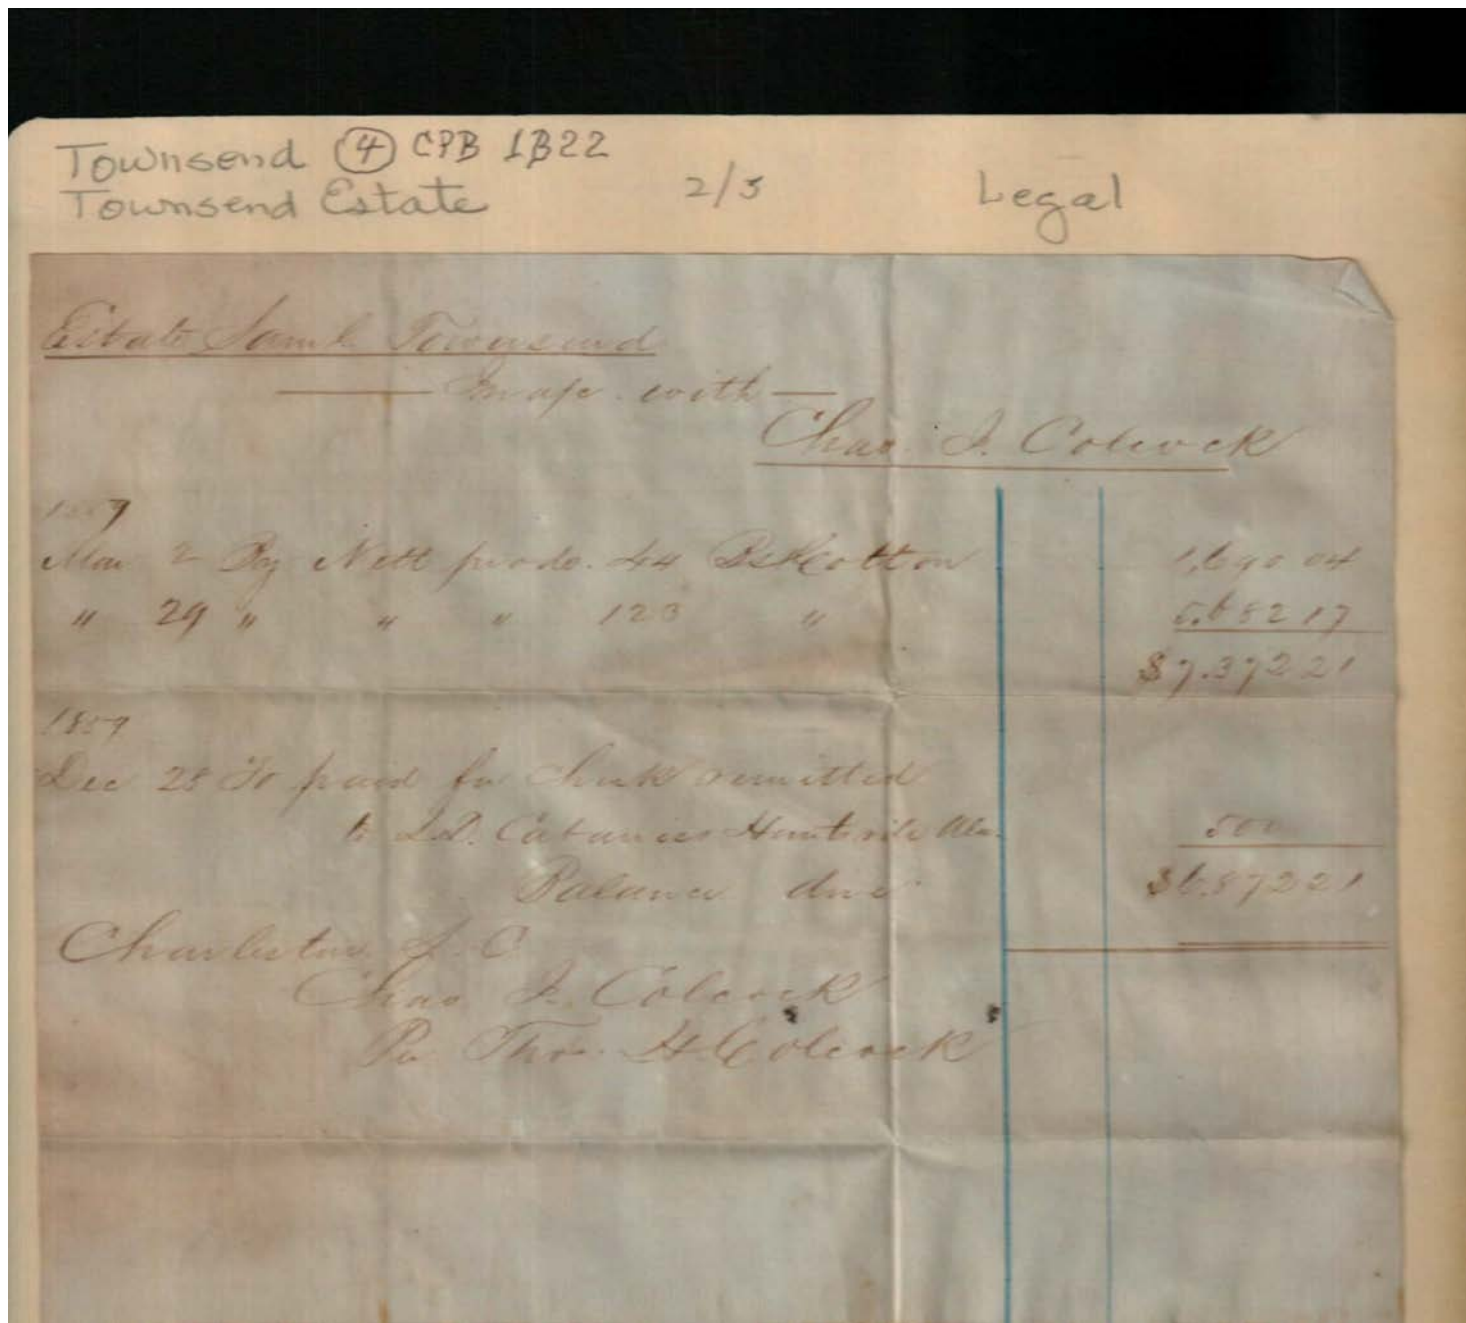 Townsend ④ CPB 1B22
Townsend Estate 2/3 Legal
Estate Saml. Townsend
In a/c. with
Chas. J. Colcock
1859
Mar 2 By Nett prods. 44 Bs Cotton 1,690 04
" 29 " " " 123 " 5.682 17
$7.372 21
1859
Dec 28 To paid for Check remitted
to S.D. Cabaniss Huntsville Ala. 500
Balance due $6.872 21
Charleston S. C
Chas J. Colcock
Pr Thos. H Colcock